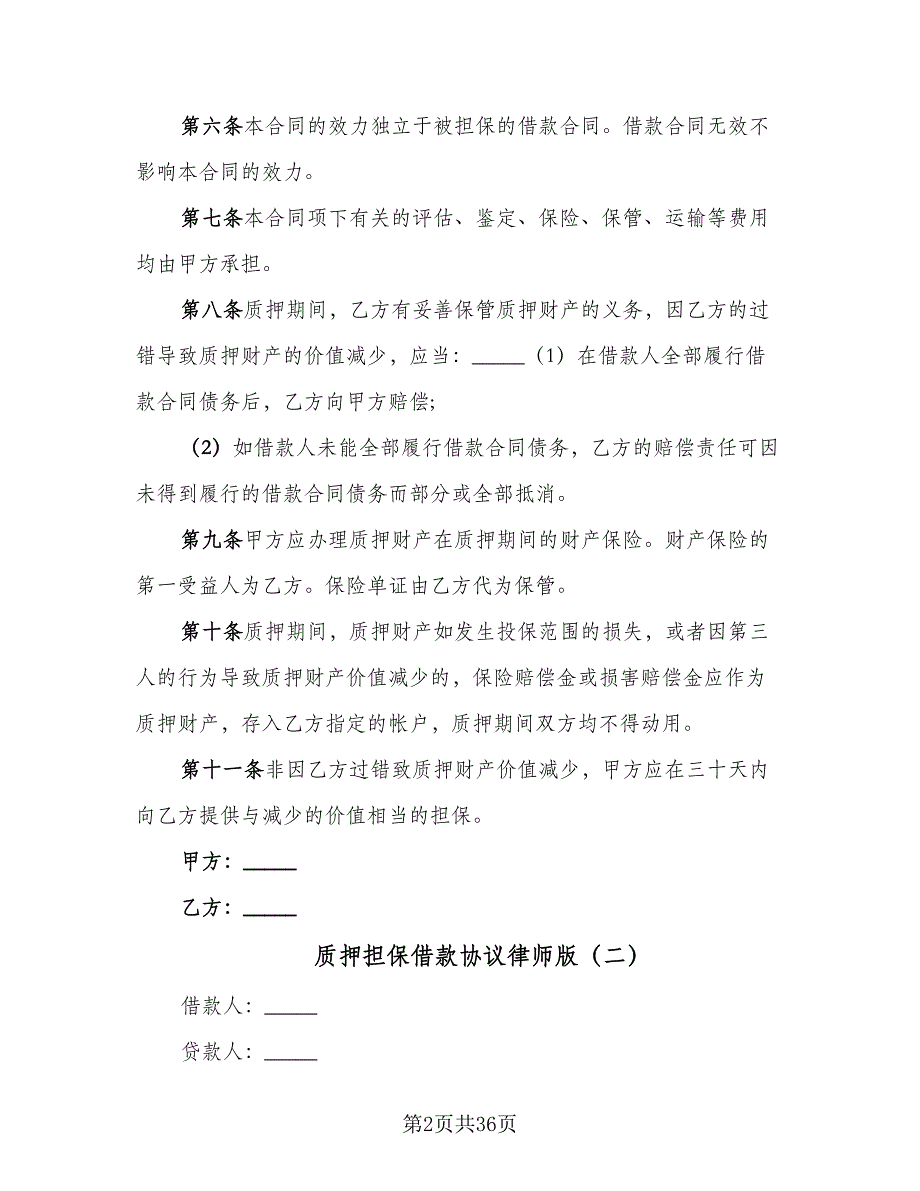 第六条本合同的效力独立于被担保的借款合同。借款合同无效不
影响本合同的效力。
第七条本合同项下有关的评估、鉴定、保险、保管、运输等费用
均由甲方承担。
第八条质押期间，乙方有妥善保管质押财产的义务，因乙方的过
错导致质押财产的价值减少，应当：_____（1）在借款人全部履行借
款合同债务后，乙方向甲方赔偿;
（2）如借款人未能全部履行借款合同债务，乙方的赔偿责任可因
未得到履行的借款合同债务而部分或全部抵消。
第九条甲方应办理质押财产在质押期间的财产保险。财产保险的
第一受益人为乙方。保险单证由乙方代为保管。
第十条质押期间，质押财产如发生投保范围的损失，或者因第三
人的行为导致质押财产价值减少的，保险赔偿金或损害赔偿金应作为
质押财产，存入乙方指定的帐户，质押期间双方均不得动用。
第十一条非因乙方过错致质押财产价值减少，甲方应在三十天内
向乙方提供与减少的价值相当的担保。
甲方：_____
乙方：_____
质押担保借款协议律师版（二）
借款人：_____
贷款人：_____
第2页共36页